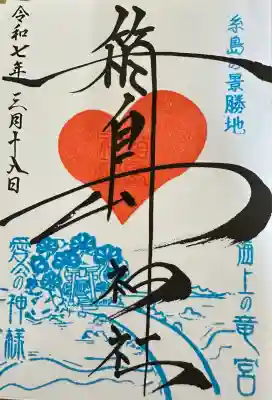 糸島の景勝地
海上の竜宮
箱島神社
愛の神様
令和七年三月十八日